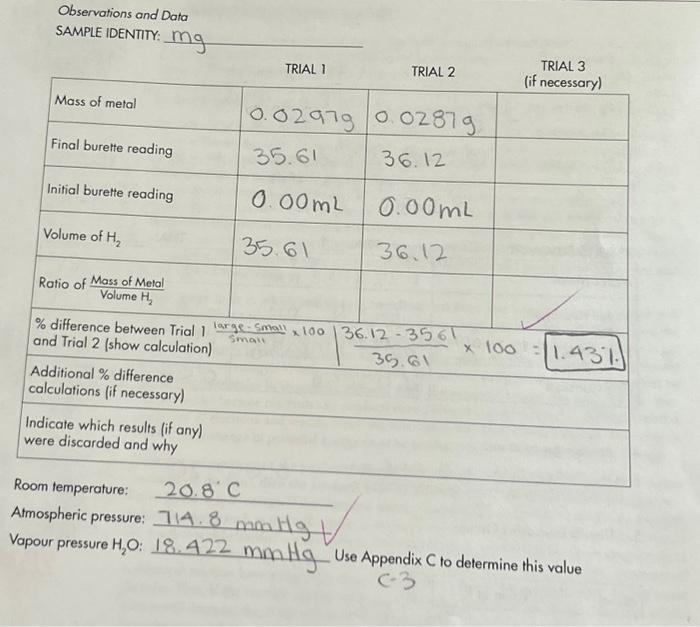 Observations and Data
SAMPLE IDENTITY: mg
TRIAL 1 TRIAL 2 TRIAL 3
(if necessary)
Mass of metal 0.0297g 0.0287g
Final burette reading 35.61 36.12
Initial burette reading 0.00mL 0.00mL
Volume of H₂ 35.61 36.12
Ratio of Mass of Metal
Volume H₂
% difference between Trial 1 large-small x 100 | 36.12 - 3561 x 100 = 1.43%
and Trial 2 (show calculation) small 35.61
Additional % difference
calculations (if necessary)
Indicate which results (if any)
were discarded and why
Room temperature: 20.8°C
Atmospheric pressure: 714.8 mmHg
Vapour pressure H₂O: 18.422 mmHg Use Appendix C to determine this value
C-3